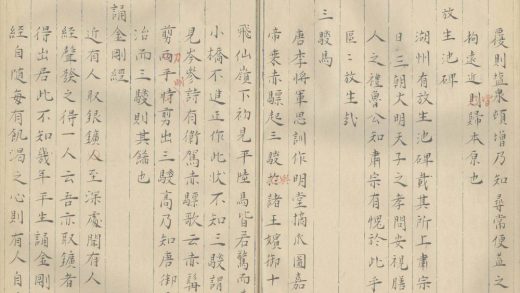 覆則鹽泉頓增乃知尋常便益之
拘遠近則歸本原也
放生池碑
湖州有放生池碑載其所上肅宗
日三朝大明天子之孝問安視膳
人之禮魯公知肅宗有愧於此乎
區區放生哉
三駿馬
唐李將軍思訓作明堂摘瓜圖嘉
帝乘赤驃起三駿於諸王嬪御十
飛仙嶺下初見平陸馬皆若驚而
小橋不進正作此狀不知三駿謂
見岑參詩有衛駕赤驃歌云赤髯
剪兩平時剪出三駿高乃知唐御
治而三駿則其餙也
誦金剛經
近有人取銀鑛入至深處聞有人
經聲發之得一人云吾亦取鑛者
得出居此不知幾年平生誦金剛
經自隨每有飢渴之心則有人自